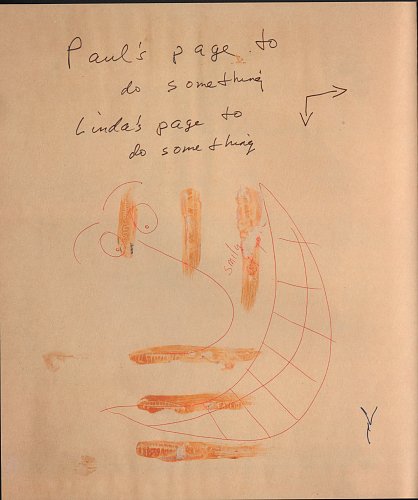 Paul's page to
do something
Linda's page to
do something
smile